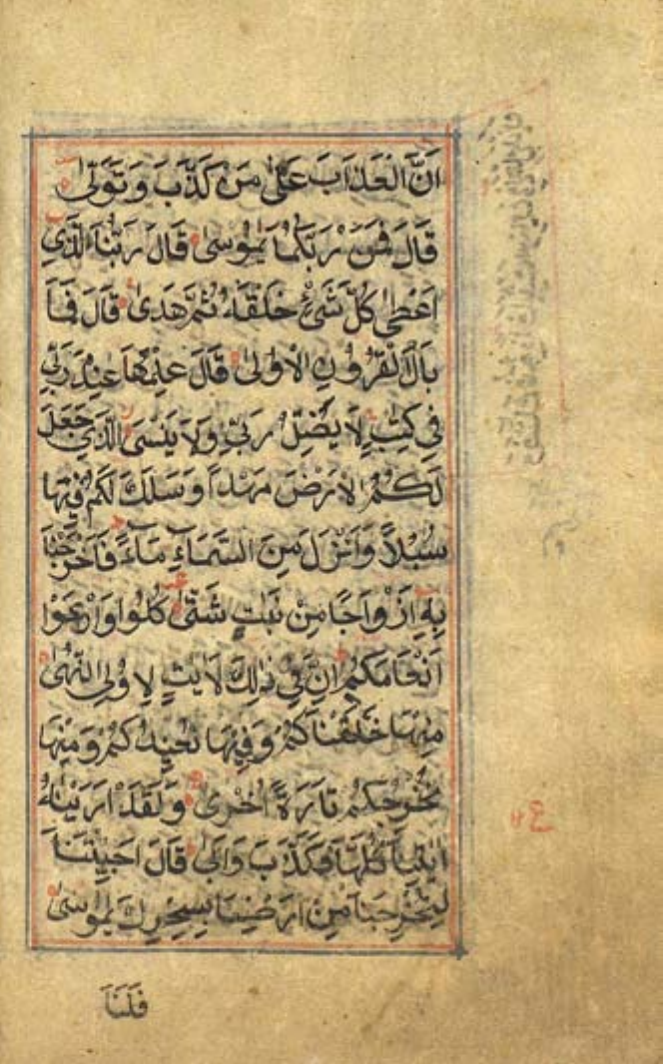 اَنَّ الْعَذَابَ عَلٰى مَنْ كَذَّبَ وَتَوَلّٰى
قَالَ فَمَنْ رَبُّكُمَا يٰمُوسٰى قَالَ رَبُّنَا الَّذِى
اَعْطٰى كُلَّ شَىْءٍ خَلْقَهُ ثُمَّ هَدٰى قَالَ فَمَا
بَالُ الْقُرُونِ الْاُولٰى قَالَ عِلْمُهَا عِنْدَ رَبِّى
فِى كِتٰبٍ لَا يَضِلُّ رَبِّى وَلَا يَنْسَى الَّذِى جَعَلَ
لَكُمُ الْاَرْضَ مَهْدًا وَسَلَكَ لَكُمْ فِيْهَا
سُبُلًا وَاَنْزَلَ مِنَ السَّمَآءِ مَآءً فَاَخْرَجْنَا
بِهٖ اَزْوَاجًا مِنْ نَبٰتٍ شَتّٰى كُلُوا وَارْعَوْا
اَنْعَامَكُمْ اِنَّ فِى ذٰلِكَ لَاٰيٰتٍ لِاُولِى النُّهٰى
مِنْهَا خَلَقْنَاكُمْ وَفِيْهَا نُعِيْدُكُمْ وَمِنْهَا
نُخْرِجُكُمْ تَارَةً اُخْرٰى وَلَقَدْ اَرَيْنَاهُ
اٰيٰتِنَا كُلَّهَا فَكَذَّبَ وَاَبٰى قَالَ اَجِئْتَنَا
لِتُخْرِجَنَا مِنْ اَرْضِنَا بِسِحْرِكَ يٰمُوسٰى
فَلَنَا